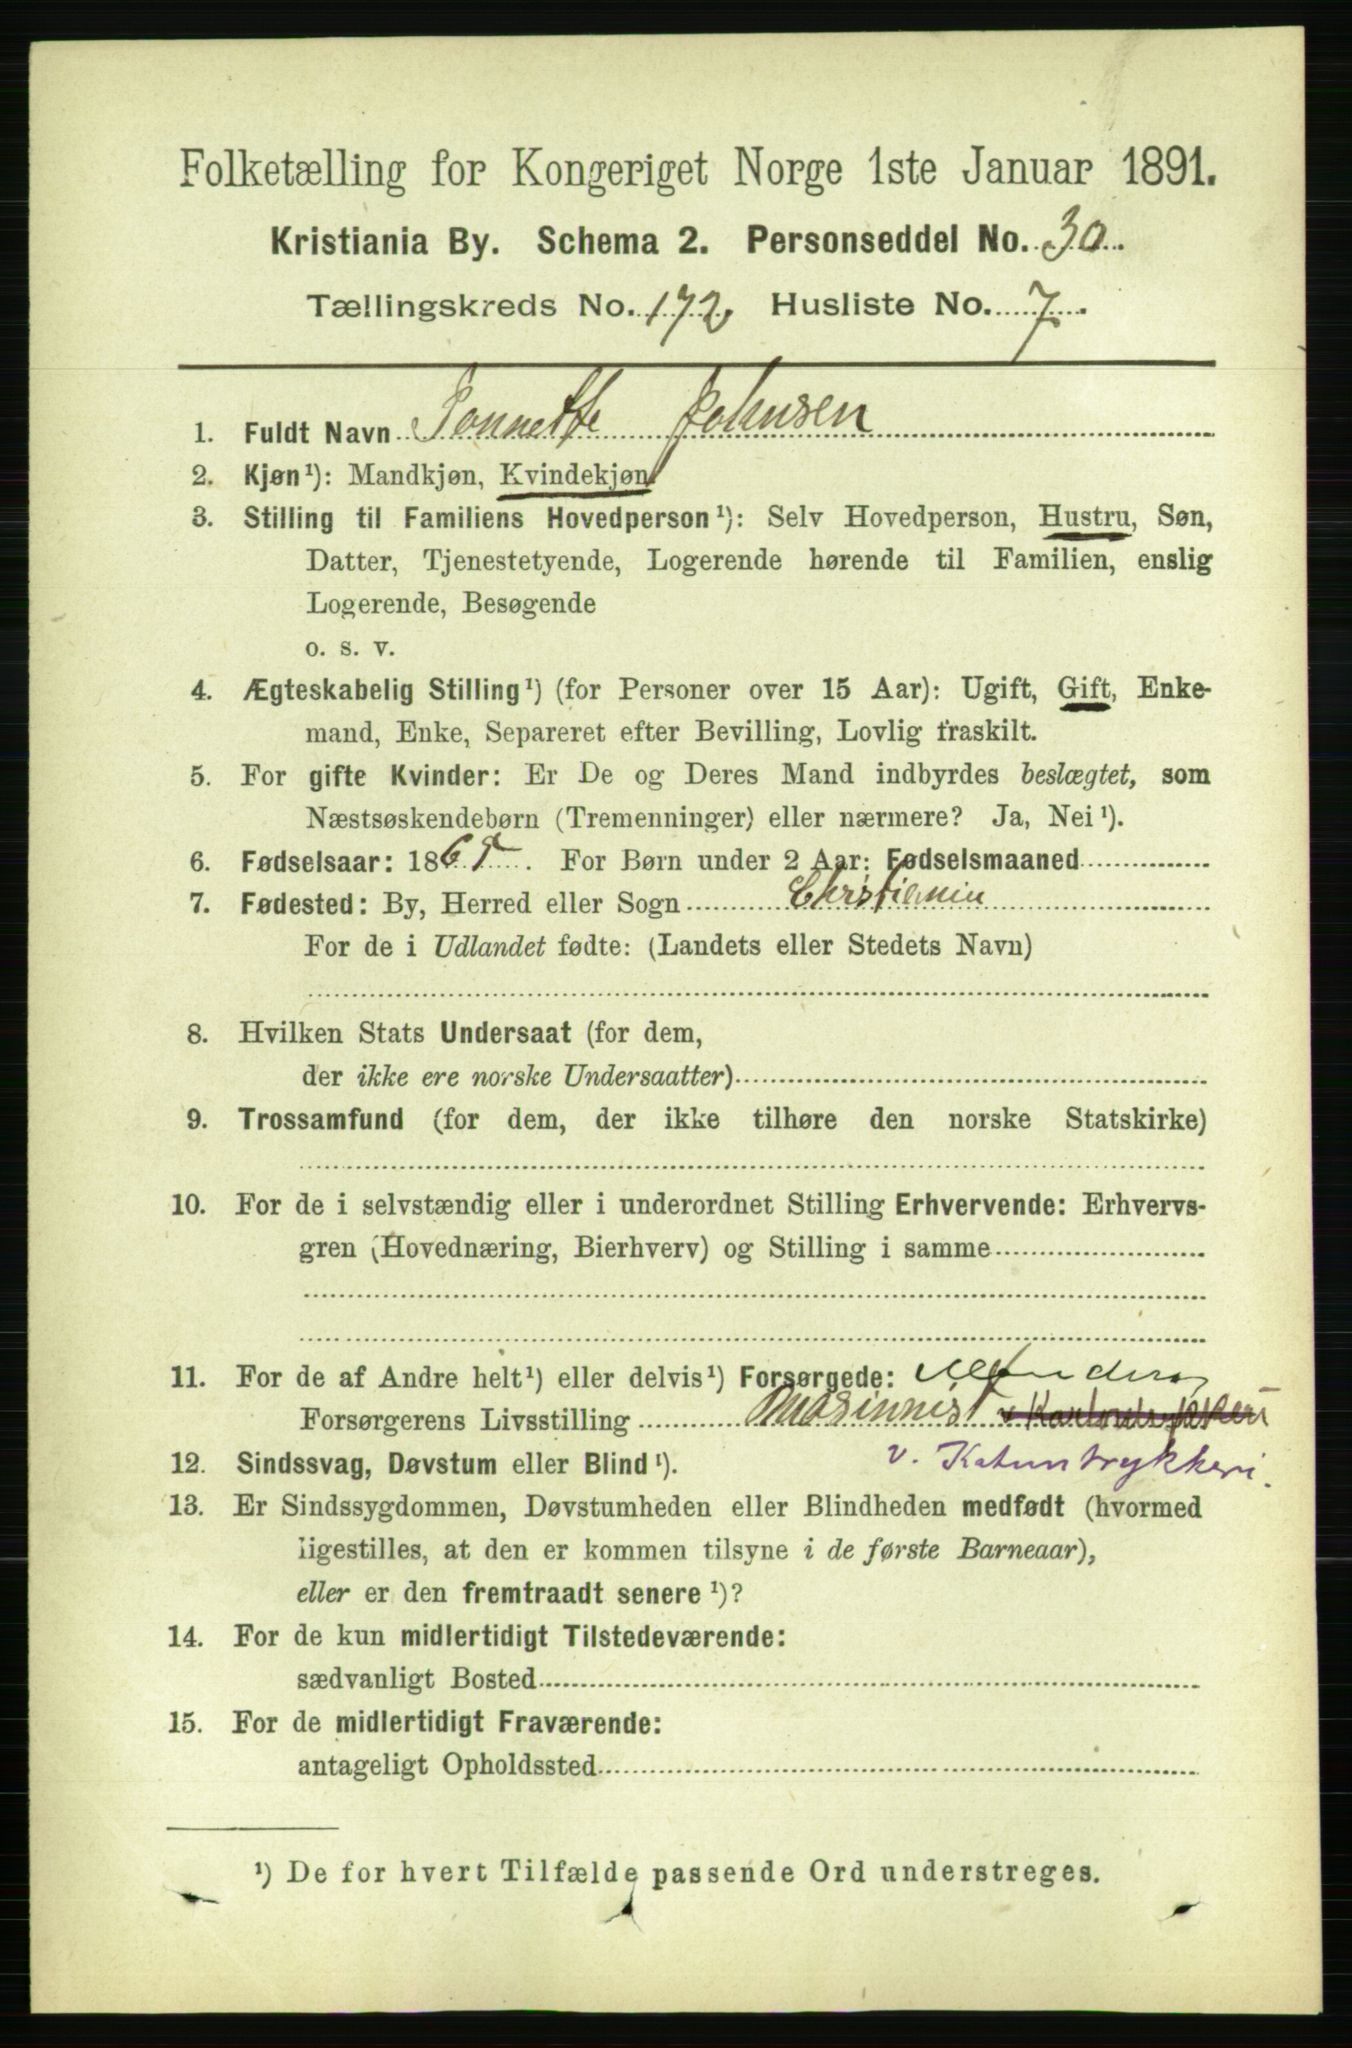 Folketælling for Kongeriget Norge 1ste Januar 1891.
Kristiania By. Schema 2. Personseddel No. 30.
Tællingskreds No. 172 Husliste No. 7.
1. Fuldt Navn Johnsen
2. Kjøn¹): Mandkjøn, Kvindekjøn
3. Stilling til Familiens Hovedperson¹): Selv Hovedperson, Hustru, Søn,
Datter, Tjenestetyende, Logerende hørende til Familien, enslig
Logerende, Besøgende
o. s. v.
4. Ægteskabelig Stilling¹) (for Personer over 15 Aar): Ugift, Gift, Enke-
mand, Enke, Separeret efter Bevilling, Lovlig fraskilt.
5. For gifte Kvinder: Er De og Deres Mand indbyrdes beslægtet, som
Næstsøskendebørn (Tremenninger) eller nærmere? Ja, Nei¹).
6. Fødselsaar: 186 . For Børn under 2 Aar: Fødselsmaaned
7. Fødested: By, Herred eller Sogn Christiania
For de i Udlandet fødte: (Landets eller Stedets Navn)
8. Hvilken Stats Undersaat (for dem,
der ikke ere norske Undersaatter)
9. Trossamfund (for dem, der ikke tilhøre den norske Statskirke)
10. For de i selvstændig eller i underordnet Stilling Erhvervende: Erhvervs-
gren (Hovednæring, Bierhverv) og Stilling i samme
11. For de af Andre helt¹) eller delvis¹) Forsørgede:
Forsørgerens Livsstilling Masinnist
v. Katuntrykkeri.
12. Sindssvag, Døvstum eller Blind¹).
13. Er Sindssygdommen, Døvstumheden eller Blindheden medfødt (hvormed
ligestilles, at den er kommen tilsyne i de første Barneaar),
eller er den fremtraadt senere¹)?
14. For de kun midlertidigt Tilstedeværende:
sædvanligt Bosted
15. For de midlertidigt Fraværende:
antageligt Opholdssted
¹) De for hvert Tilfælde passende Ord understreges.